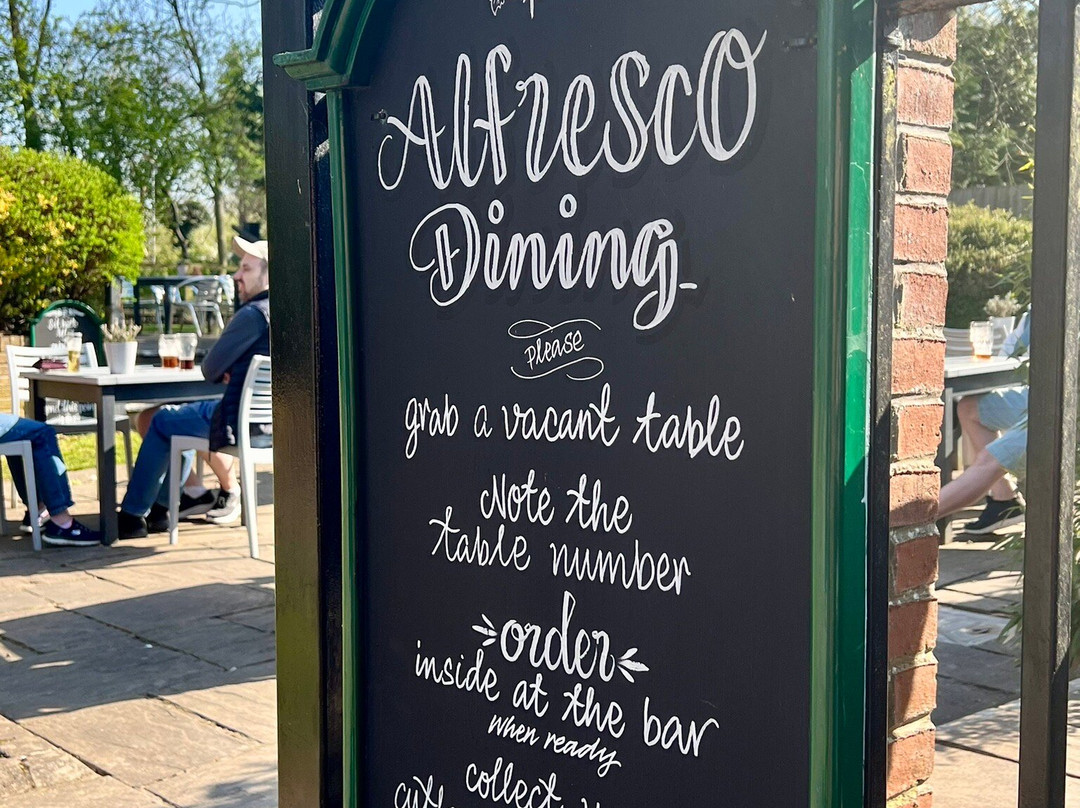 Alfresco
Dining
please
grab a vacant table
Note the
table number
order
inside at the bar
when ready
collect